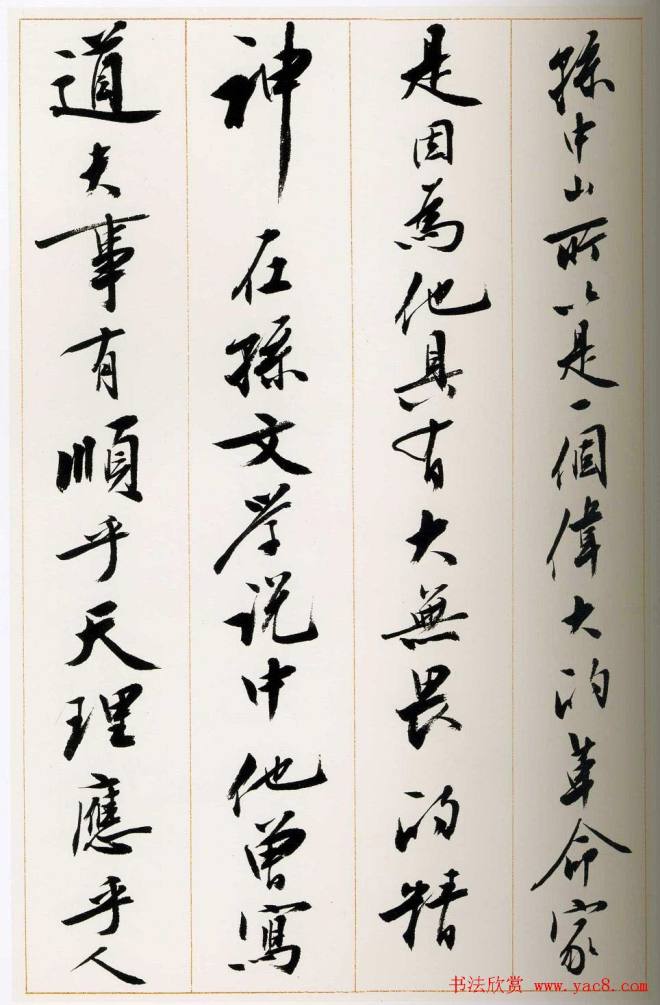 孫中山所以是一個偉大的革命家
是因爲他具有大無畏的精
神在孫文学説中他曾寫
道夫事有順乎天理應乎人
书法欣赏 www.yac8.com